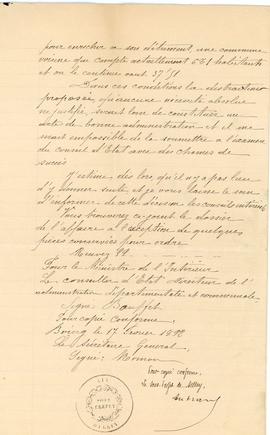 pour enrichir à son détriment, une commune
voisine que compte actuellement 561 habitants
et on le continue aout 37 91
Dans ces conditions la distraction
proposée qu'aucune nécessité absolue
ne justifie, serait loin de constituer un
acte de bonne administration et il me
serait impossible de la soumettre à l'examen
du conseil d'Etat avec des chances de
succès
J'estime dès lors qu'il n'y a pas lieu
d'y donner suite et je vous laisse le soin
d'informer de cette décision les conseils intéressés
Vous trouverez ci-joint le dossier
de l'affaire à l'exception de quelques
pièces conservées pour ordre
Recevez &&
Pour le Ministre de l'Intérieur
Le conseiller d'Etat Directeur de l'
administration départementale et communale
Signé:
Pour copie conforme
Bourg le 17 Février 1892
Le Secrétaire Général
Signé:
Pour copie conforme
Le sous-Préfet de